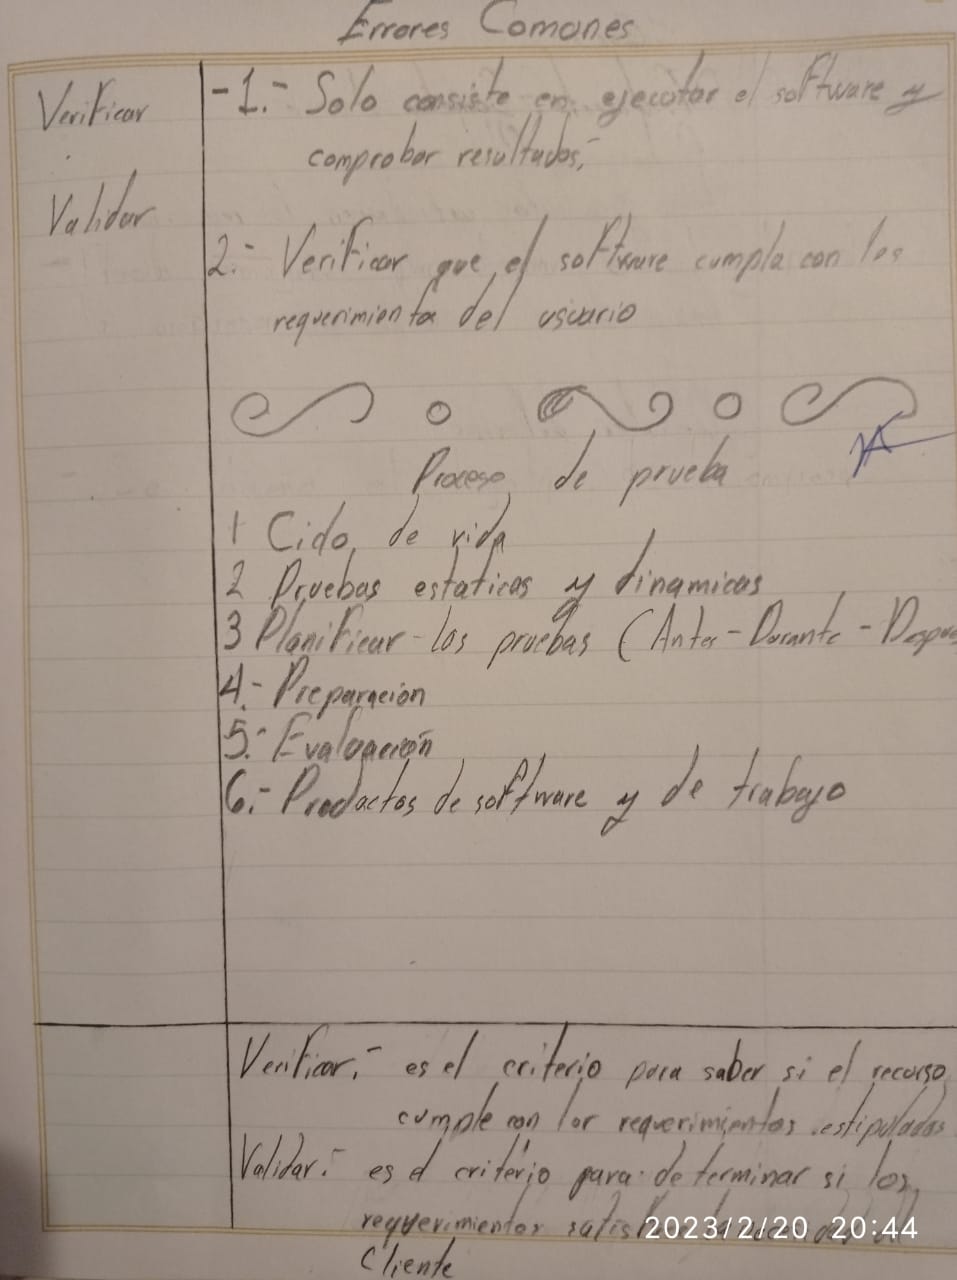 Errores Comones
Verificar
Validar
-1.- Solo consiste en ejecutar el software y
comprobar resultados,-
2.- Verificar que el software cumpla con los
requerimientos del usuario
Proceso de prueba
1 Ciclo de vida
2 Pruebas estaticas y dinamicas
3 Planificar - las pruebas (Antes - Durante - Despu
4.- Preparación
5.- Evaluación
6.- Productos de software y de trabajo
Verificar,- es el criterio para saber si el recurso
cumple con los requerimientos estipulados
Validar.- es el criterio para determinar si los
requerimientos
Cliente
2023/2/20 20:44